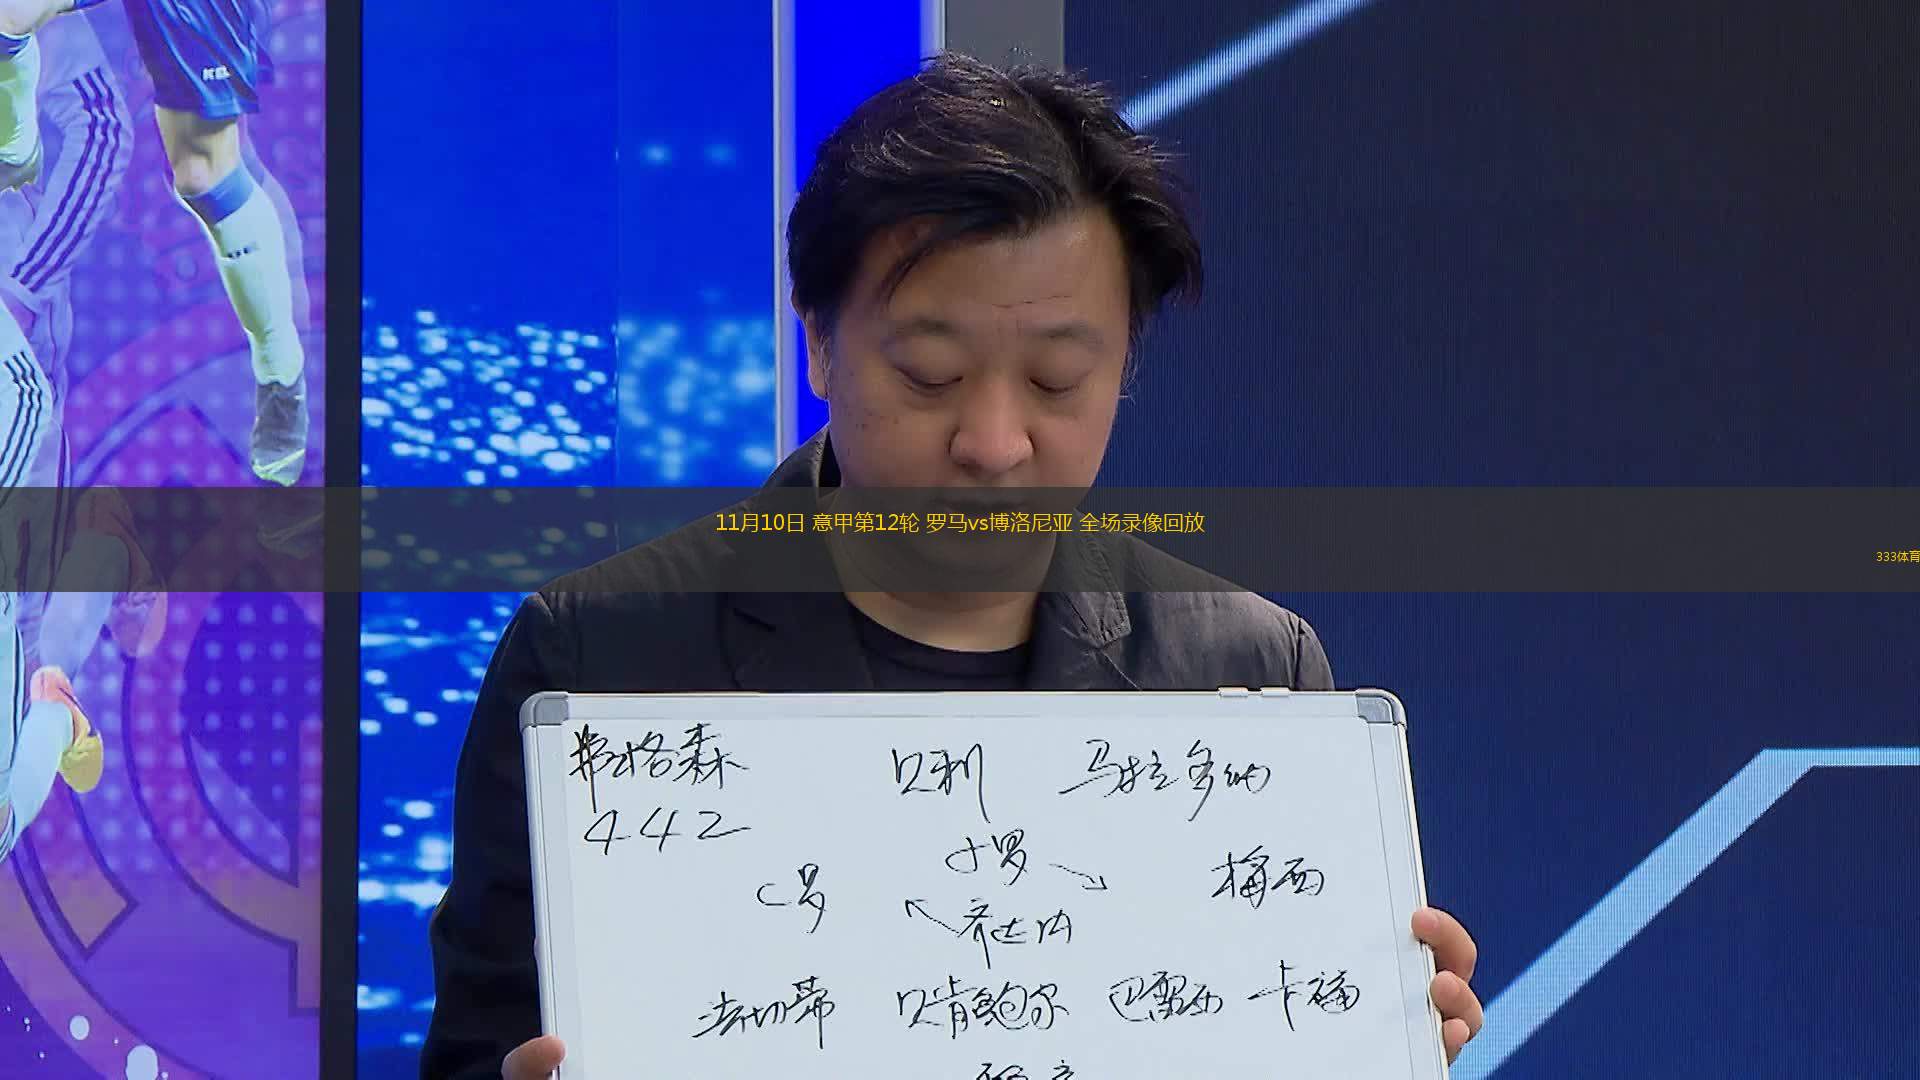 11月10日 意甲第12轮 罗马vs博洛尼亚 全场录像回放
333体育
弗格森 贝利 马拉多纳
442
小罗
C罗 梅西
齐达内
法切蒂 贝肯鲍尔 巴雷西 卡福